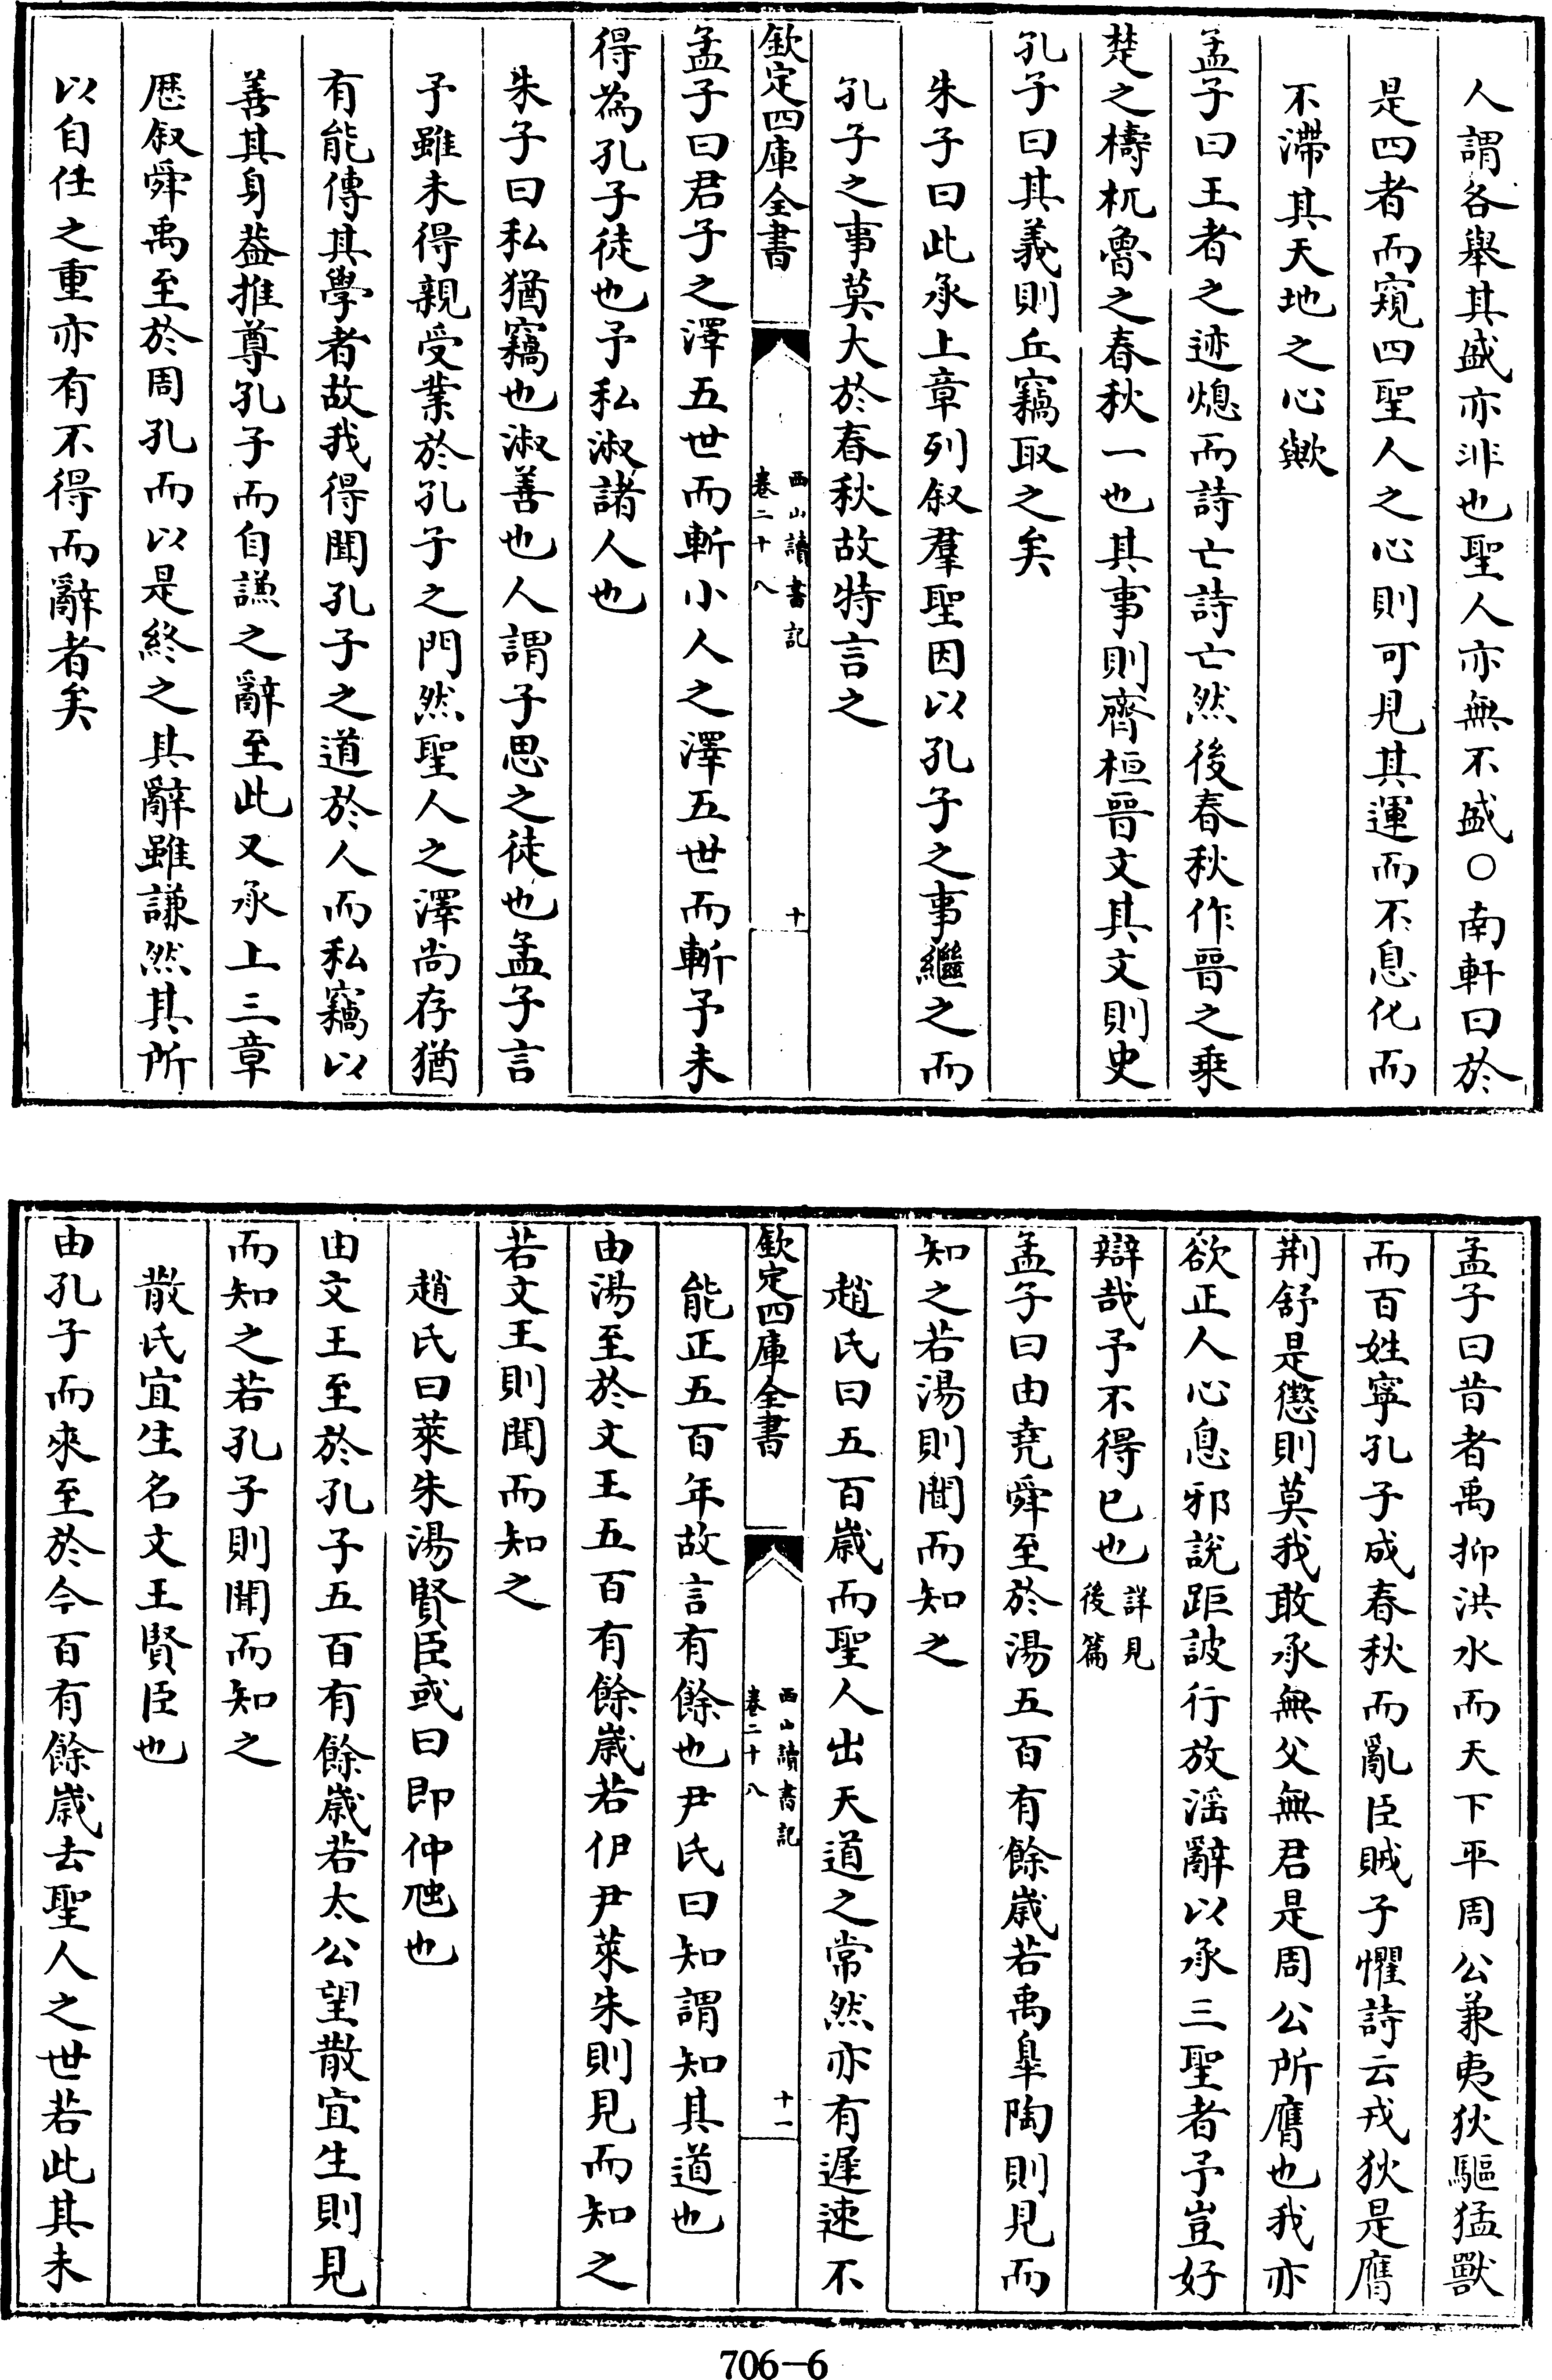 人謂各舉其盛亦非也聖人亦無不盛○南軒曰於
是四者而窺四聖人之心則可見其運而不息化而
不滯其天地之心歟
孟子曰王者之迹熄而詩亡詩亡然後春秋作晉之乗
楚之檮杌魯之春秋一也其事則齊桓晉文其文則史
孔子曰其義則丘竊取之矣
朱子曰此承上章列叙羣聖因以孔子之事繼之而
孔子之事莫大於春秋故特言之
欽定四庫全書
西山讀書記
卷二十八
十
孟子曰君子之澤五世而斬小人之澤五世而斬予未
得為孔子徒也予私淑諸人也
朱子曰私猶竊也淑善也人謂子思之徒也孟子言
予雖未得親受業於孔子之門然聖人之澤尚存猶
有能傳其學者故我得聞孔子之道於人而私竊以
善其身葢推尊孔子而自謙之辭至此又承上三章
歴叙舜禹至於周孔而以是終之其辭雖謙然其所
以自任之重亦有不得而辭者矣
孟子曰昔者禹抑洪水而天下平周公兼夷狄驅猛獸
而百姓寧孔子成春秋而亂臣賊子懼詩云戎狄是膺
荆舒是懲則莫我敢承無父無君是周公所膺也我亦
欲正人心息邪說距詖行放淫辭以承三聖者予豈好
辯哉予不得已也詳見
後篇
孟子曰由堯舜至於湯五百有餘歲若禹臯陶則見而
知之若湯則聞而知之
趙氏曰五百歲而聖人出天道之常然亦有遲速不
欽定四庫全書
西山讀書記
卷二十八
十一
能正五百年故言有餘也尹氏曰知謂知其道也
由湯至於文王五百有餘歲若伊尹萊朱則見而知之
若文王則聞而知之
趙氏曰萊朱湯賢臣或曰即仲虺也
由文王至於孔子五百有餘歲若太公望散宜生則見
而知之若孔子則聞而知之
散氏宜生名文王賢臣也
由孔子而來至於今百有餘歲去聖人之世若此其未
706-6